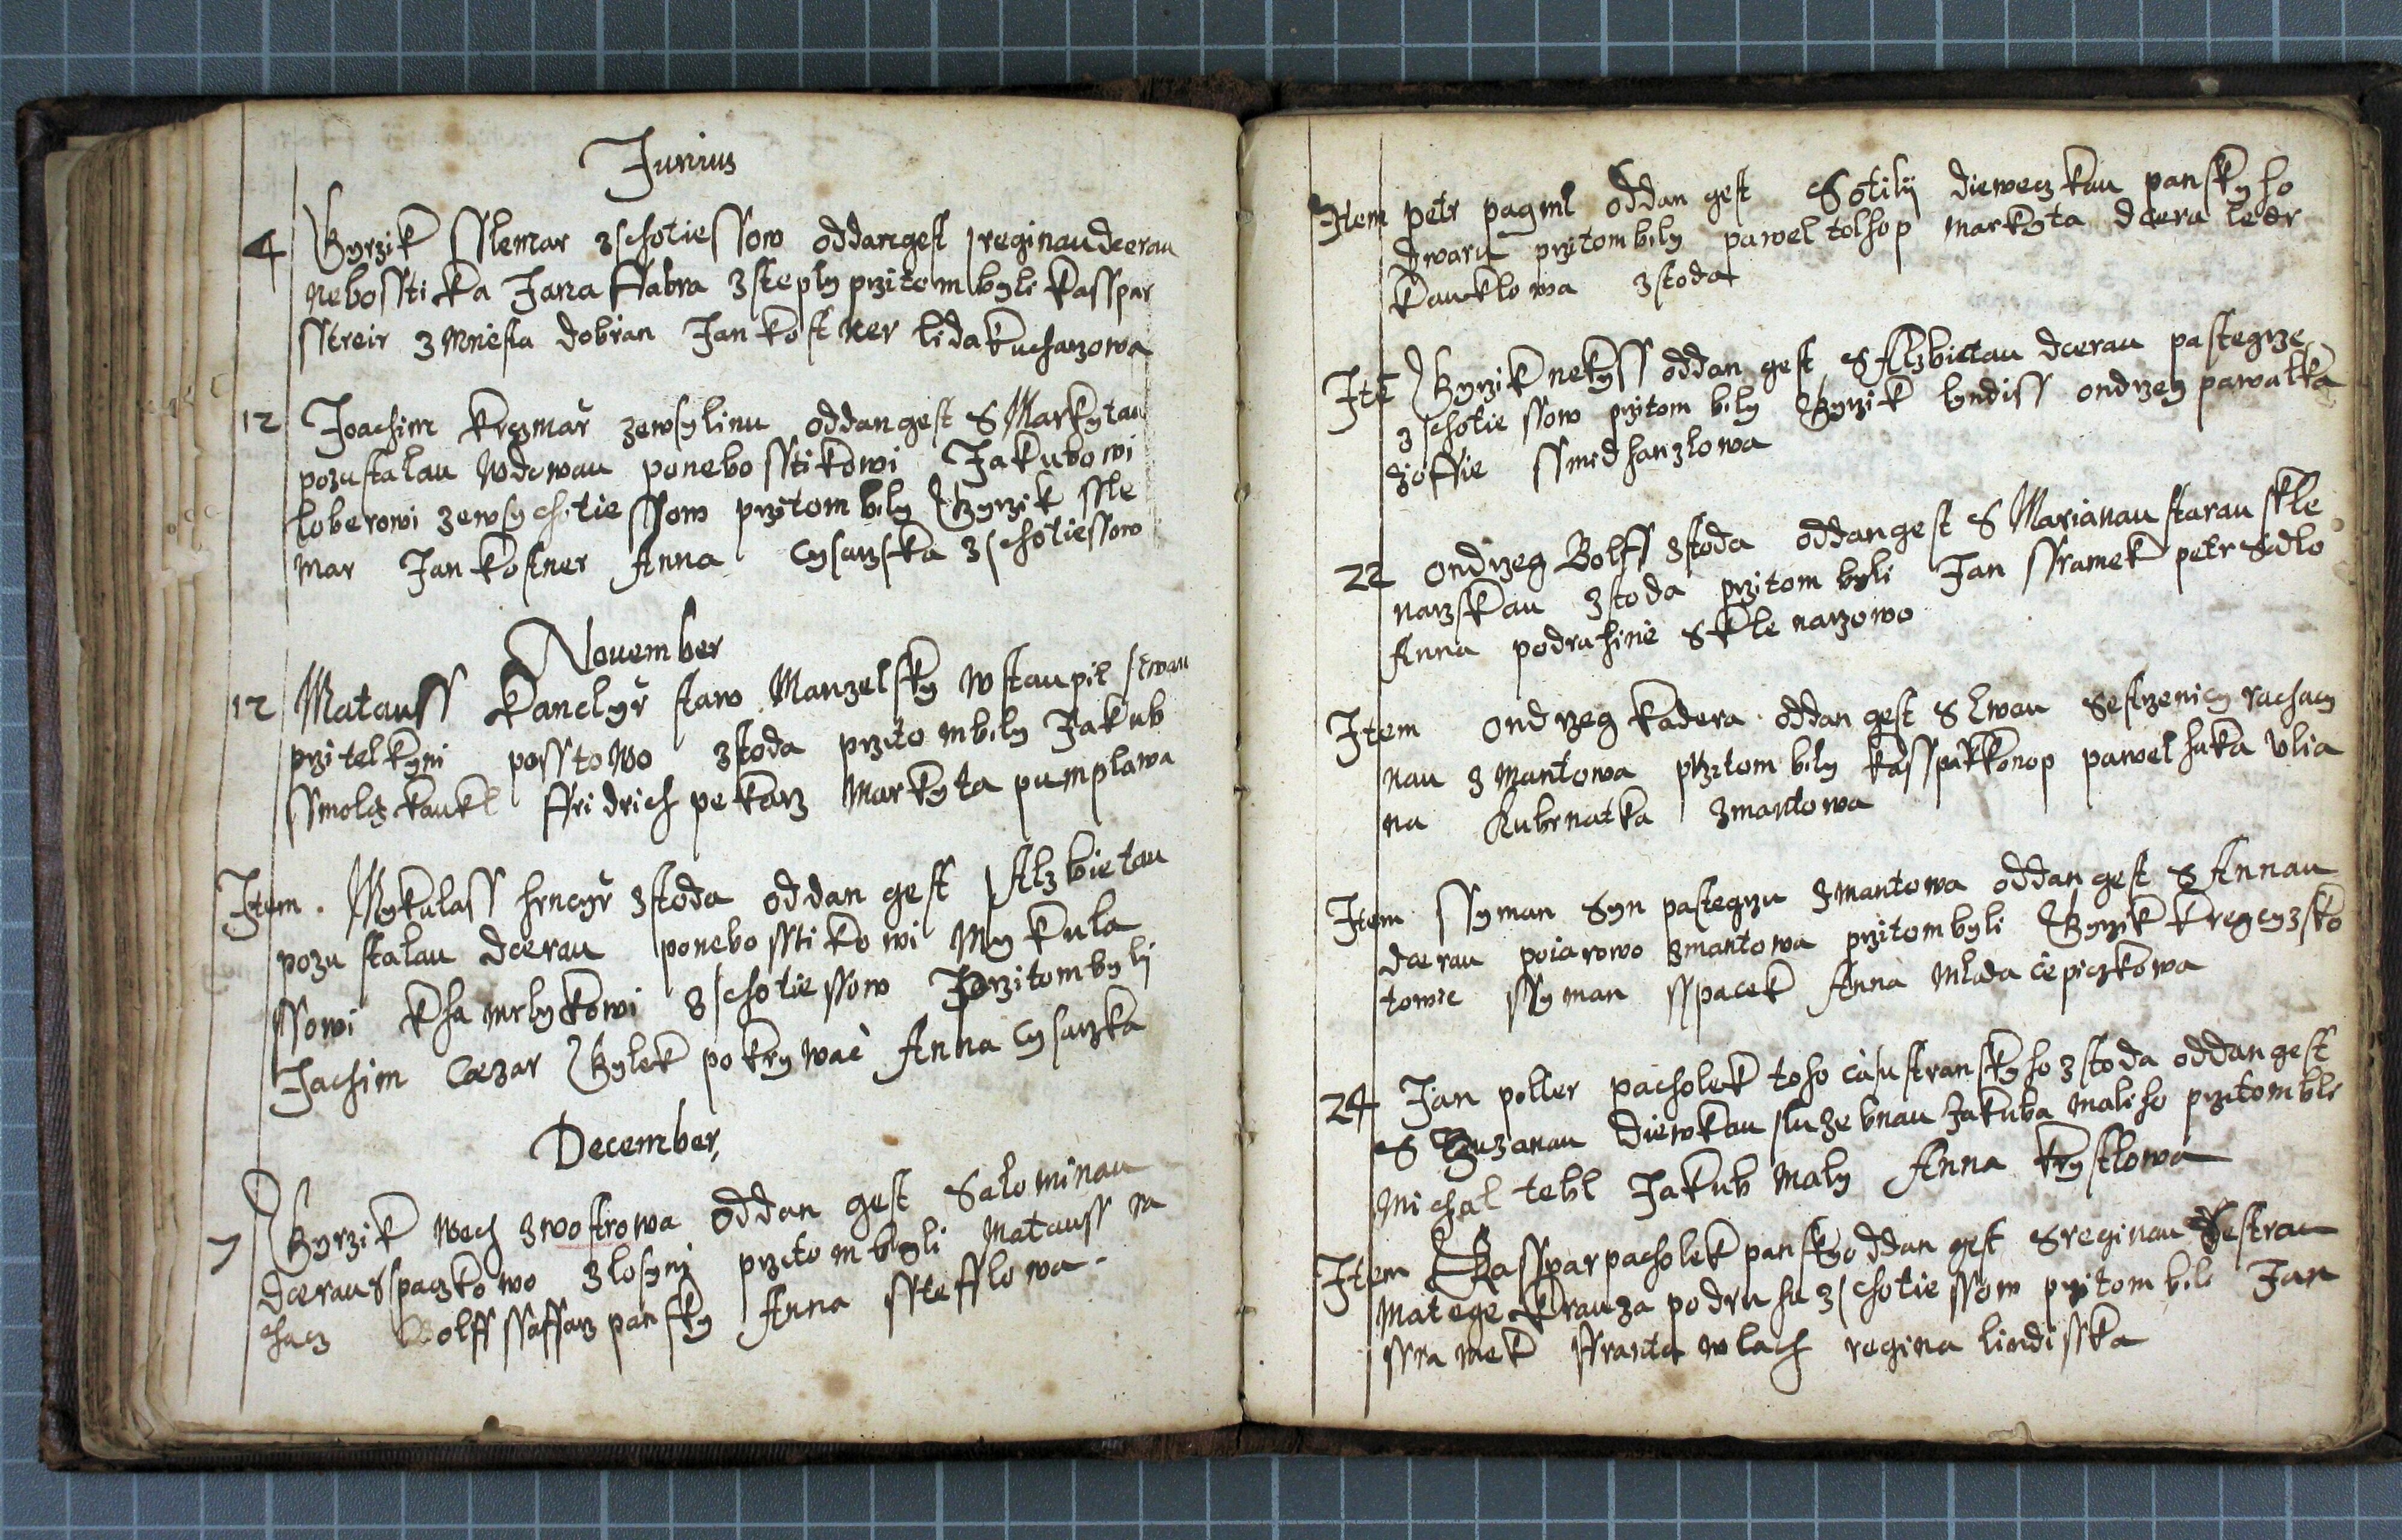 Junius
4 Gyrzik sslemar z schotiessow oddan gest s reginau dcerau
nebosstika Jana ffabra z steply przitom byli kasspar
sstreir z Miesta dobrian Jan kostner lida kucharzowa
12 Joachim krczmař zewsylinu oddan gest S Markytau
pozustalau Wdowau po nebosstikowi Jakubowi
loberowi zewsy chotiessow przitom bily Gyrzik ssle
mar Jan kostner Anna Cysarzka z schotiessow
Nouember
12 Matauss kanclyř staw Manzelsky W staupil s ewau
przitelkyni posstowo z stoda przitom bily Jakub
ssmolcz kaukl ffridrich pekarz Markyta pumplawa
Item Mykulass hrncyř z stoda oddan gest s Alzbietau
pozustalau dcerau po nebosstikowi Mykula
ssowi khamrlykowi z schotiessow Przitom byli
Jachim Cæzar Gylek pokrywač Anna Cysarzka
December,
7 Gyrzik Wech z wostrowa oddan gest Salominau
dcerau Spaczkowo z losyni przitom byli Matauss ra
chacz Wolff ssaffarz pansky Anna sstefflowa
Item petr pagml oddan gest S otilij dieweczkau panskyho
dwaru przitom bily pawel tolhop markyta dcera leor
kaucklowa z stoda
Ite Gyrzik nekyss oddan gest S Alzbietau dcerau pastegrze
z schotiessow przitom bily Gyrzik lyndiss ondrzeg pawalka
zioffie ssmidhanzlowa
22 ondrzeg Bolff z stoda oddan gest S Marianau starau skle
narzskau z stoda przitom byli Jan ssramek petr Sadlo
Anna podruhine Sklenarzowo
Item ondrzeg kadera oddan gest S Ewau Sestrzenicy rachacy
nau z Mantowa przitom bily kasspar konop pawel huka Vlia
na kubrnatka z mantowa
Item ssyman Syn pastegrzu z Mantowa oddan gest S Annau
dcerau poiarowo z mantowa przitom byli Gyrzik kregcyzsko
towic ssyman sspacek Anna Mlada cepiczkowa
24 Jan poller pacholek toho času stranskyho z stoda oddan gest
S Zuzanau diewkau sluzebnau Jakuba Maliho przitom bli
Michal tebl Jakub Maly Anna krystlowa
Item Kasspar pacholek pansky oddan gest S reginau Sestrau
Matege krauza podruhu z schotiessow przitom bili Jan
ssramek ffranta wlach regina lindisska